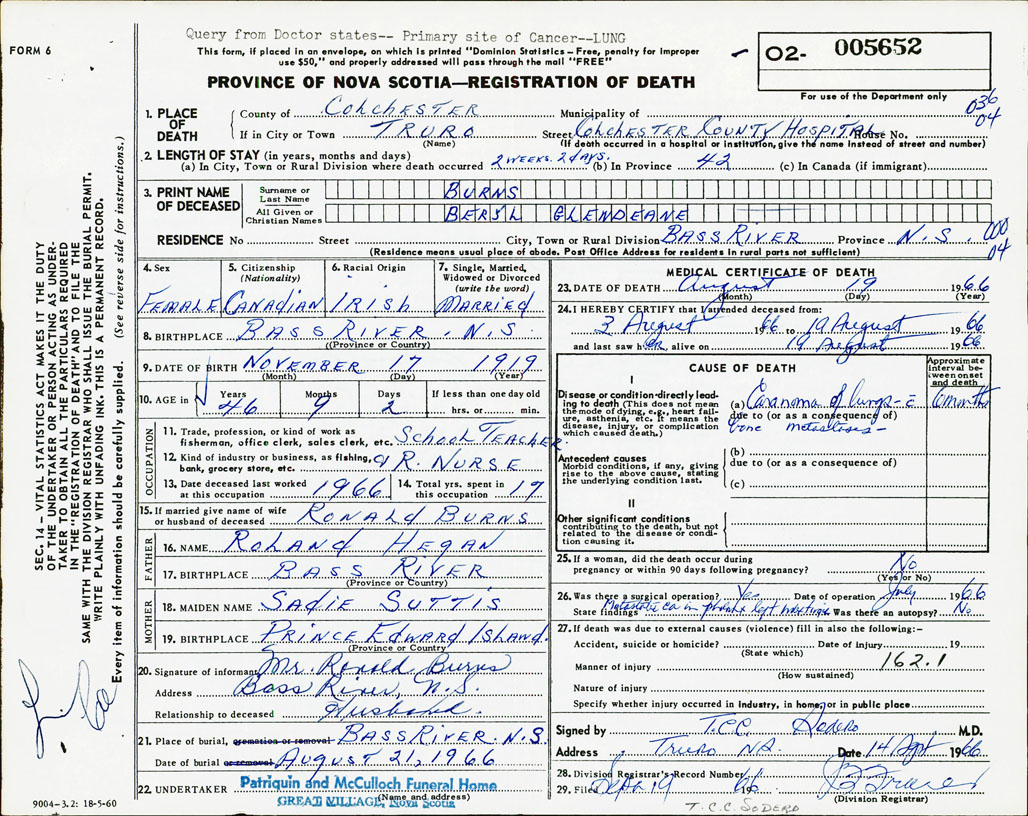 Query from Doctor states-- Primary site of Cancer--LUNG
FORM 6
This form, if placed in an envelope, on which is printed "Dominion Statistics – Free, penalty for improper
use $50," and properly addressed will pass through the mail "FREE"
O2- 005652
PROVINCE OF NOVA SCOTIA—REGISTRATION OF DEATH
For use of the Department only
036
04
1. PLACE OF DEATH
County of COLCHESTER Municipality of
If in City or Town TRURO Street COLCHESTER COUNTY HOSPITAL House No.
(Name) (If death occurred in a hospital or institution, give the name instead of street and number)
2. LENGTH OF STAY (in years, months and days)
(a) In City, Town or Rural Division where death occurred 2 WEEKS. 2 days. (b) In Province 42 (c) In Canada (if immigrant)
3. PRINT NAME OF DECEASED
Surname or Last Name BURNS
All Given or Christian Names BERYL GLENDEANE
RESIDENCE No Street City, Town or Rural Division BASS RIVER Province N.S.
000
04
(Residence means usual place of abode. Post Office Address for residents in rural parts not sufficient)
4. Sex FEMALE
5. Citizenship (Nationality) CANADIAN
6. Racial Origin IRISH
7. Single, Married, Widowed or Divorced (write the word) MARRIED
8. BIRTHPLACE BASS RIVER. N.S.
(Province or Country)
9. DATE OF BIRTH NOVEMBER 17 1919
(Month) (Day) (Year)
10. AGE in Years 46 Months 9 Days 2 If less than one day old hrs. or min.
OCCUPATION
11. Trade, profession, or kind of work as
fisherman, office clerk, sales clerk, etc. SCHOOL TEACHER
12. Kind of industry or business, as fishing,
bank, grocery store, etc. R. NURSE
13. Date deceased last worked at this occupation 1966
14. Total yrs. spent in this occupation 17
15. If married give name of wife
or husband of deceased RONALD BURNS
FATHER
16. NAME ROLAND HEGAN
17. BIRTHPLACE BASS RIVER
(Province or Country)
MOTHER
18. MAIDEN NAME SADIE SUTTIS
19. BIRTHPLACE PRINCE EDWARD ISLAND.
(Province or Country)
20. Signature of informant Mr. Ronald Burns
Address Bass River, N.S.
Relationship to deceased Husband.
21. Place of burial, cremation or removal BASS RIVER. N.S.
Date of burial or removal AUGUST 21, 1966
22. UNDERTAKER Patriquin and McCulloch Funeral Home
GREAT VILLAGE, Nova Scotia
(Name and address)
MEDICAL CERTIFICATE OF DEATH
23. DATE OF DEATH August 19 1966
(Month) (Day) (Year)
24. I HEREBY CERTIFY that I attended deceased from:
3 August 1966 to 19 August 1966
and last saw her alive on 19 August 1966
CAUSE OF DEATH
Approximate interval between onset and death
I
Disease or condition directly leading to death (This does not mean the mode of dying, e.g., heart failure, asthenia, etc. It means the disease, injury, or complication which caused death.)
(a) Carcinoma of lungs - c 6 months
due to (or as a consequence of)
bone metastasis -
Antecedent causes
Morbid conditions, if any, giving rise to the above cause, stating the underlying condition last.
(b)
due to (or as a consequence of)
(c)
II
Other significant conditions
contributing to the death, but not related to the disease or condition causing it.
25. If a woman, did the death occur during
pregnancy or within 90 days following pregnancy? No
(Yes or No)
26. Was there a surgical operation? Yes Date of operation July 1966
State findings Metastatic ca in left Was there an autopsy? No
27. If death was due to external causes (violence) fill in also the following:—
Accident, suicide or homicide? Date of injury 19
(State which)
Manner of injury 162.1
(How sustained)
Nature of injury
Specify whether injury occurred in industry, in home, or in public place
Signed by T.C.C. Sodero M.D.
Address Truro NS. Date 14 Sept 1966
28. Division Registrar's Record Number
29. Filed Sept 19 1966
(Division Registrar)
T.C.C. SODERO
SEC. 14 – VITAL STATISTICS ACT MAKES IT THE DUTY
OF THE UNDERTAKER OR PERSON ACTING AS UNDER-
TAKER TO OBTAIN ALL THE PARTICULARS REQUIRED
IN THE "REGISTRATION OF DEATH" AND TO FILE THE
SAME WITH THE DIVISION REGISTRAR WHO SHALL ISSUE THE BURIAL PERMIT.
WRITE PLAINLY WITH UNFADING INK. THIS IS A PERMANENT RECORD.
Every item of information should be carefully supplied. (See reverse side for instructions.)
9004-3.2: 18-5-60